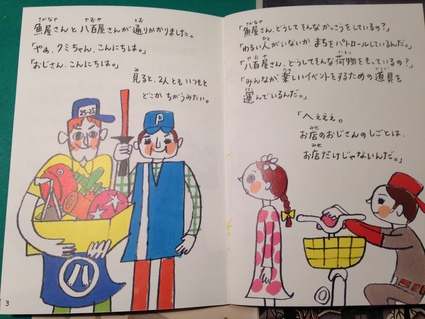 魚屋さんと八百屋さんが通りかかりました。
「やあ、クミちゃん、こんにちは。」
「おじさん、こんにちは。」
見ると、2人ともいつもと
どこかちがうみたい。
P
八
3
「魚屋さん、どうしてそんなかっこうをしているの?」
「わるい人がいないか まちをパトロールしているんだ。」
「八百屋さん、どうしてそんな荷物をもっているの?」
「みんなが楽しいイベントをするための道具を
運んでいるんだ。」
「へぇぇぇ。
お店のおじさんのしごとは、
お店だけじゃないんだ。」